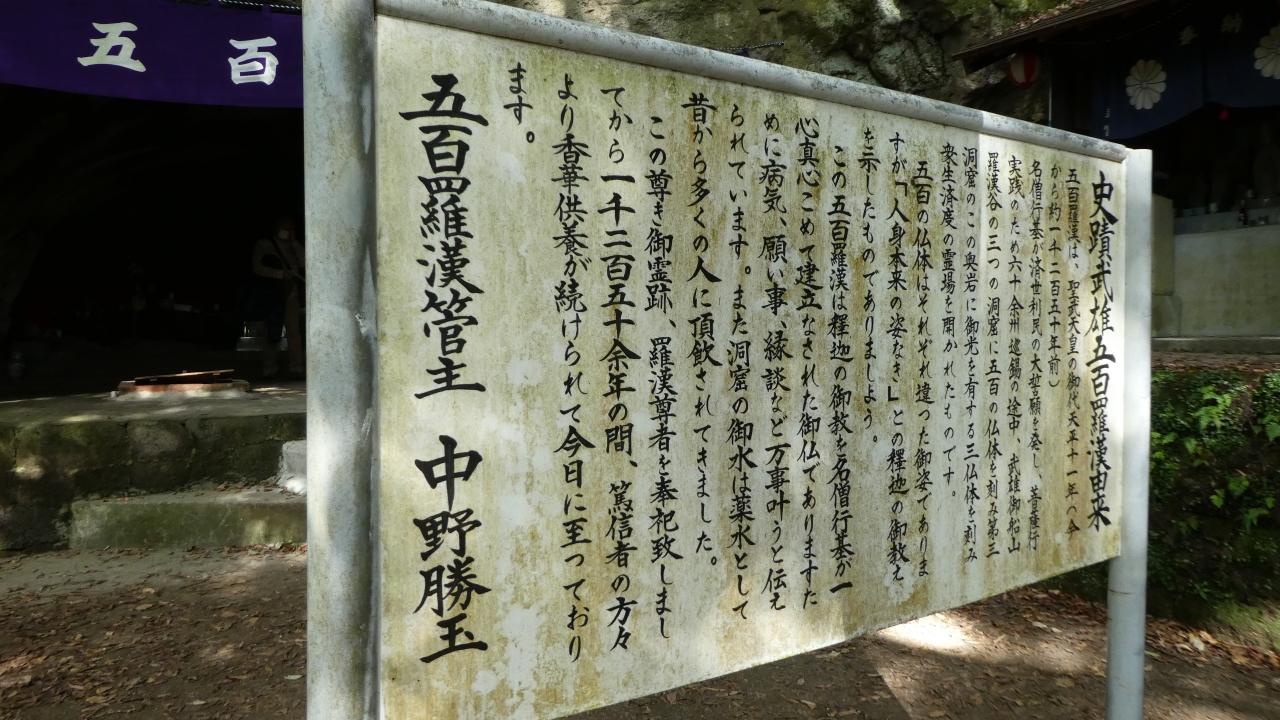 五百
史蹟武雄五百羅漢由来
五百羅漢は、聖武天皇の御代天平十一年(今
から約一千二百五十年前)
名僧行基が済世利民の大誓願を発し、菩薩行
実践のため六十余州巡錫の途中、武雄御船山
羅漢谷の三つの洞窟に五百の仏体を刻み第三
洞窟のこの奥岩に御光を有する三仏体を刻み
衆生済度の霊場を開かれたものです。
五百の仏体はそれぞれ違った御姿でありま
すが「人身本来の姿なき」との釋迦の御教え
を示したものでありましよう。
この五百羅漢は釋迦の御教を名僧行基が一
心真心こめて建立なされた御仏でありますた
めに病気、願い事、縁談など万事叶うと伝え
られています。また洞窟の御水は薬水として
昔から多くの人に頂飲されてきました。
この尊き御霊跡、羅漢尊者を奉祀致しまし
てから一千二百五十余年の間、篤信者の方々
より香華供養が続けられて今日に至っており
ます。
五百羅漢管主 中野勝玉